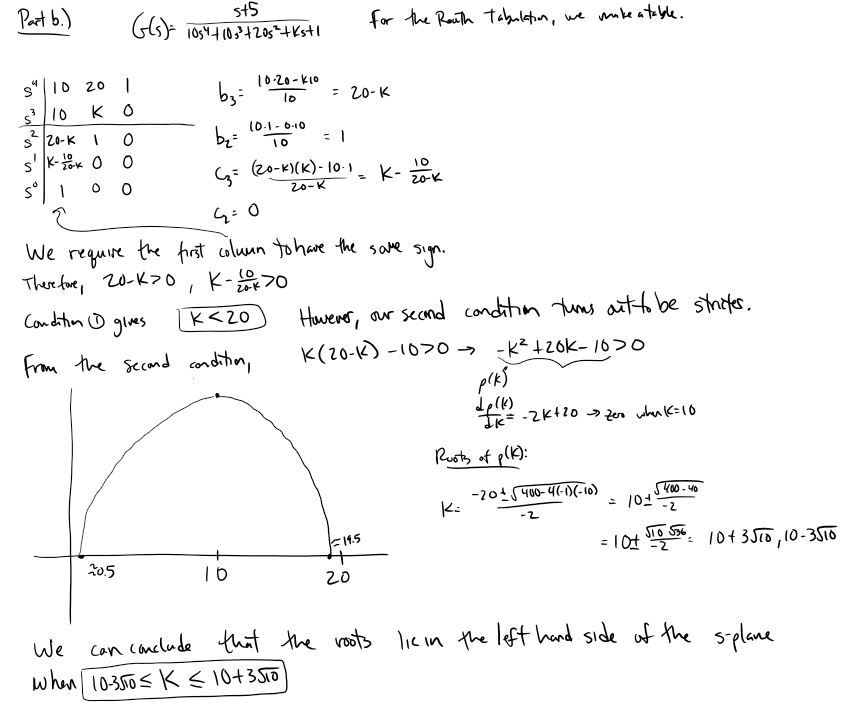 Part b.) G(s) = s+5 / 10s⁴+10s³+20s²+Ks+1 For the Routh Tabulation, we make a table.
s⁴ | 10 20 1
s³ | 10 K 0
s² | 20-K 1 0
s¹ | K-10/20-K 0 0
s⁰ | 1 0 0
b₃ = 10·20-K10 / 10 = 20-K
b₂ = 10·1-0·10 / 10 = 1
C₃ = (20-K)(K)-10·1 / 20-K = K - 10/20-K
C₂ = 0
We require the first column to have the same sign.
Therefore, 20-K>0 , K-10/20-K>0
Condition ① gives K<20 However, our second condition turns out to be stricter.
From the second condition, K(20-K)-10>0 → -K²+20K-10>0
p(K)
dp(K)/dK = -2K+20 → zero when K=10
Roots of p(K):
K= -20±√400-4(-1)(-10) / -2 = 10±√400-40 / -2
= 10±√10 √36 / -2 = 10+3√10, 10-3√10
≈19.5
≈0.5 10 20
We can conclude that the roots lie in the left hand side of the s-plane
when 10-3√10 ≤ K ≤ 10+3√10